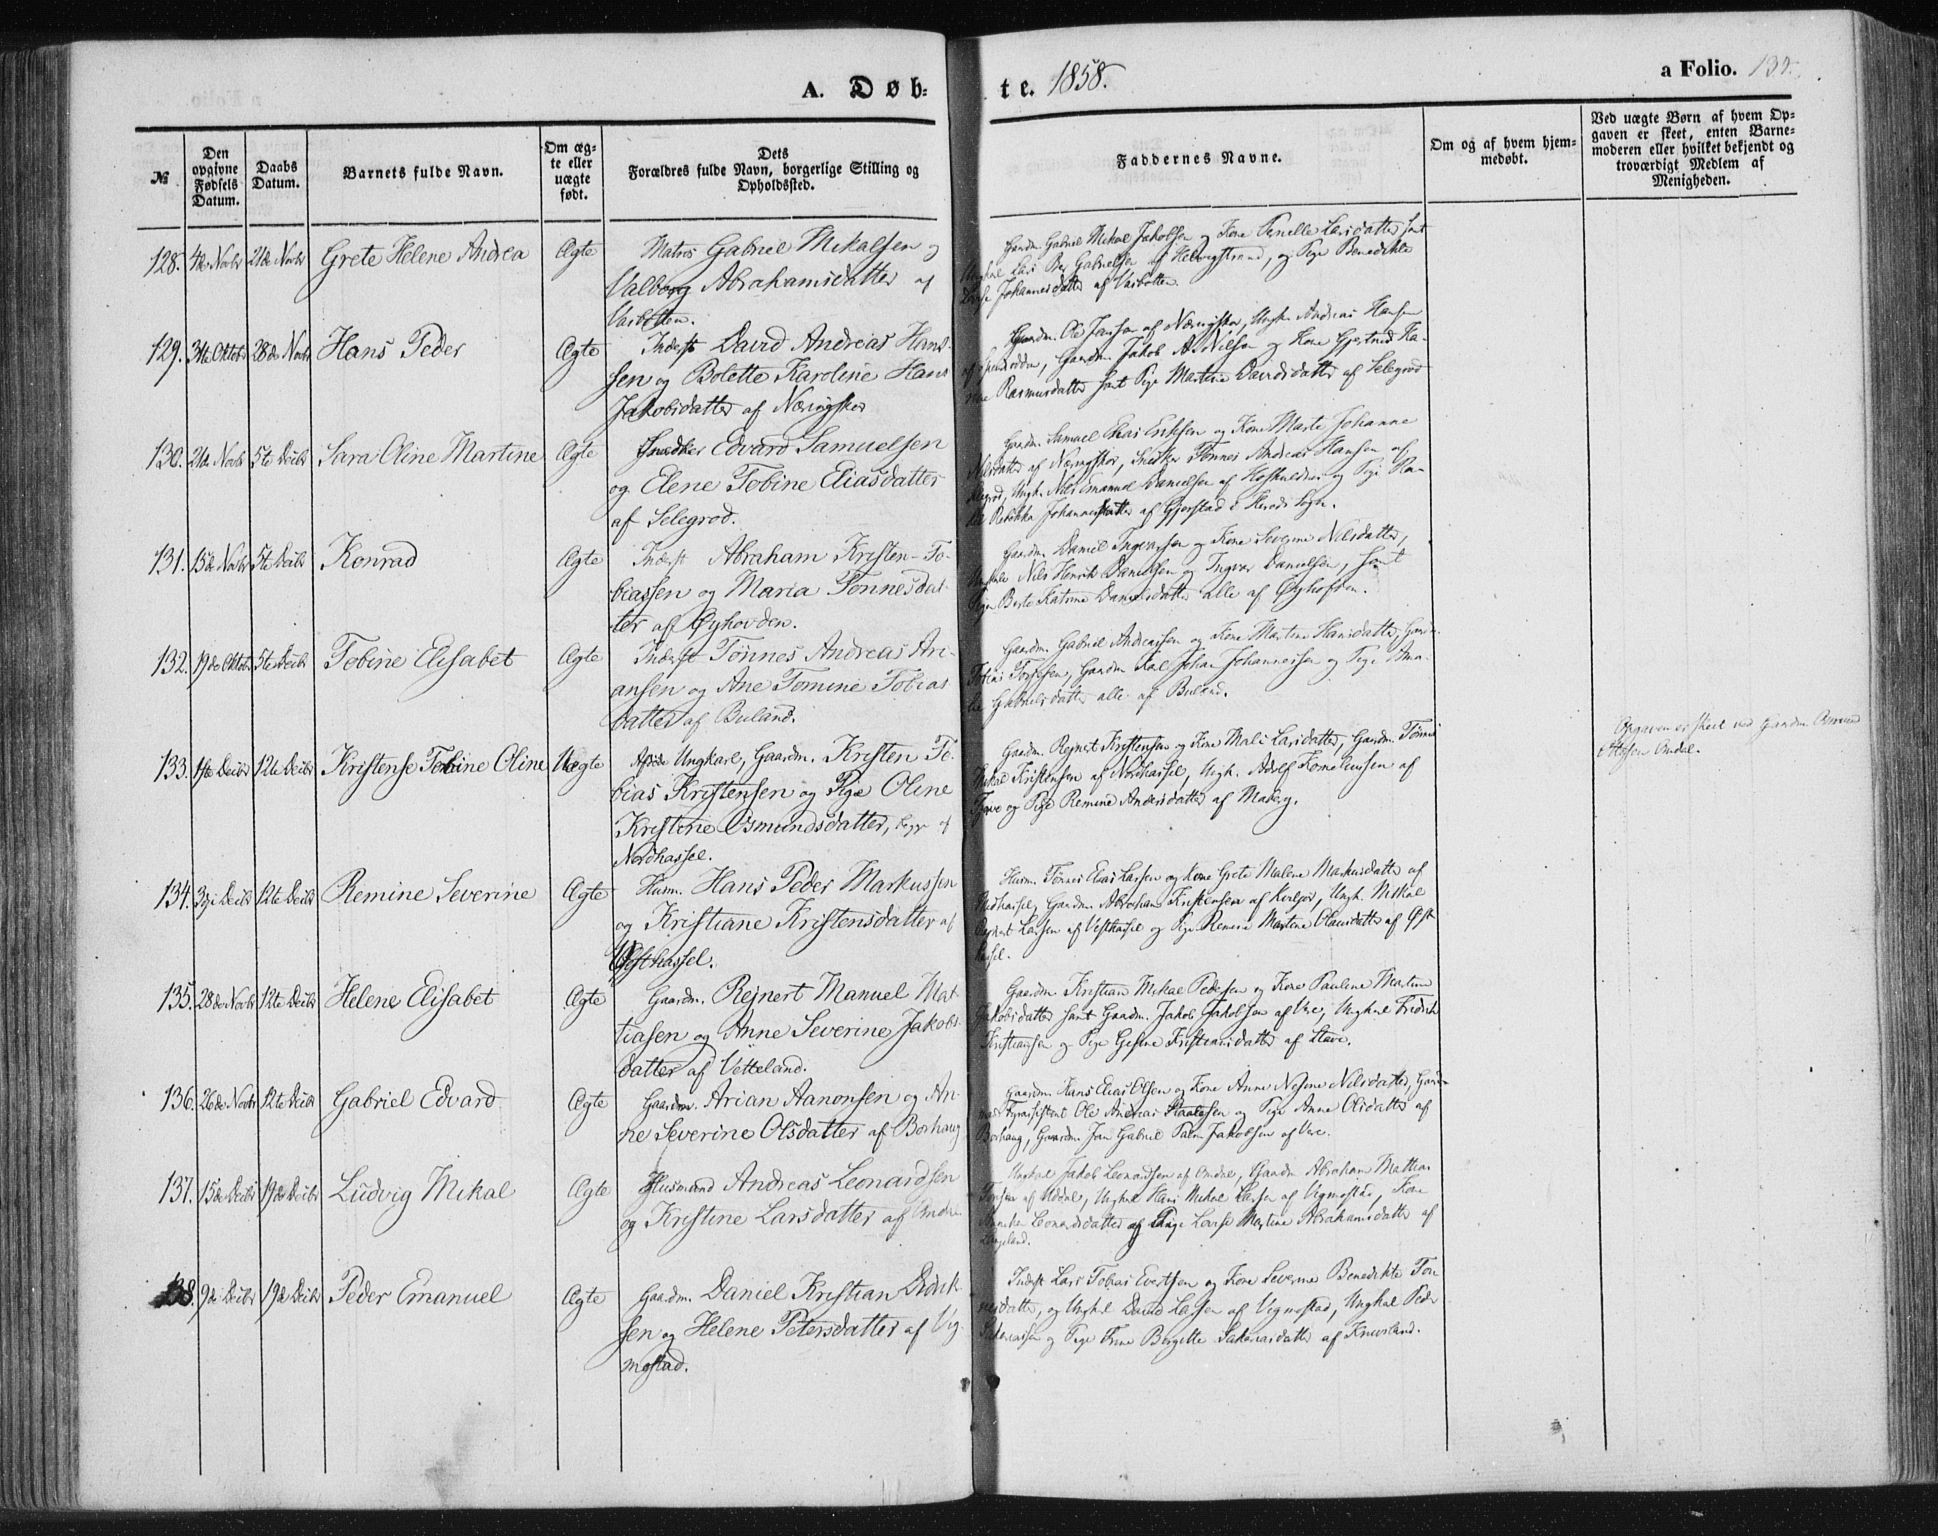 A. Døb-
te. 1858.
a Folio. 135.
№
Den opgivne Fødsels Datum.
Daabs Datum.
Barnets fulde Navn.
Om ægte eller uægte født.
Dets
Forældres fulde Navn, borgerlige Stilling og
Opholdssted.
Faddernes Navne.
Om og af hvem hjemmedøbt.
Ved uægte Børn af hvem Opgaven er skeet, enten Barnemoderen eller hvilket bekjendt og troværdigt Medlem af Menigheden.
128. 4de Novbr 21de Novbr Grete Helene Andrea Ægte Matros Gabriel Mekalsen og
Valborg Abrahamsdatter af
Varbotten.
Gaardm. Gabriel Mekal Jakobsen og Kone Pernille Larsdatter samt
Ungkal Lars Gabrielsen af Helvigstrand, og Pige Benedikte
Johannesdatter af Varbotten.
129. 31te Oktobr 28de Novbr Hans Peder Ægte Inderst David Andreas Han-
sen og Bolette Karoline Hans
Jakobsdatter af Næringskor
Gaardm. Ole Jansen af Næringskor, Ungk. Andreas Hansen
Gaardm. Jakob A. Nilsen og Kone Gjertrud Ka-
Rasmusdatter samt Pige Martine Davidsdatter af Selegrod
130. 21de Novbr 5te Decbr Sara Oline Martine Ægte Snedker Edvard Samuelsen
og Elene Tobine Eliasdatter
af Selegrod.
Gaardm. Samuel Elias Eriksen og Kone Marte Johanne
Nilsdatter af Næringskor, Snedker Tønnes Andreas Hansen af
Selegrod, Ungk. Nils Emanuel Danielsen af og Pige Ra-
Rebekka Johannesdatter af Gjerstad i Herads Sogn.
131. 15de Novbr 5te Decbr Konrad Ægte Inderst Abraham Kristen To-
biassen og Maria Tønnesdat-
ter af Øyhovden.
Gaardm. Daniel Ingvarsen og Kone Severine Nilsdatter,
Ungkale Nils Henrik Danielsen og Ingvar Danielsen, samt
Pigen Berte Katrine Danielsdatter alle af Øyhofden.
132. 19de Oktobr 5te Decbr Tobine Elisabet Ægte Inderst Tønnes Andreas Ari-
ansen og Ane Tomine Tobias
datter af Buland.
Gaardm. Gabriel Andreassen og Kone Martine Hansdatter, Gaardm.
Tobias Torgesen, Gaardm. Karl Johan Johannessen og Pige Ama-
lie Gabrielsdatter alle af Buland.
133. 1ste Decbr 12te Decbr Kristense Tobine Oline Uægte Ungkarl, Gaardm. Kristen To-
bias Kristensen og Pige Oline
Kristine Osmundsdatter, begge af
Nordhassel.
Gaardm. Rejnert Kristensen og Kone Mali Larsdatter, Gaardm. Tønnes
Mikal Kristensen af Nordhassel, Ungk. Adolf Korneliussen af
og Pige Remine Andersdatter af Maberg.
Opgaven er skeet ved Gaardm. Osmund
Ottesen Omdal.
134. 3die Decbr 12te Decbr Remine Severine Ægte Husm. Hans Peder Markussen
og Kristiane Kristensdatter af
Vesthassel.
Husm. Tønnes Elias Larsen og Kone Grete Malene Markusdatter af
Midhassel, Gaardm. Abraham Kristensen af Kviljo, Ungk. Mekal
Rejnert Larsen af Vesthassel og Pige Remine Martine Olausdatter af Øst-
hassel.
135. 28de Novbr 12te Decbr Helene Elisabet Ægte Gaardm. Rejnert Manuel Mat-
tiasen og Anne Severine Jakobs-
datter af Vetteland.
Gaardm. Kristian Mekal Pedersen og Kone Pauline Martine
Jakobsdatter samt Gaardm. Jakob Jakobsen af Vere, Ungkal Fredrik
Kristiansen og Pige Gesine Kristiansdatter af Stave.
136. 26de Novbr 12te Decbr Gabriel Edvard Ægte Gaardm. Arian Aanonsen og An-
ne Severine Olsdatter af Borhaug
Gaardm. Hans Elias Olsen og Kone Anne Nesine Nilsdatter, Gaard-
Fyrassistent Ole Andreas Staalesen og Pige Anne Olsdatter af
Borhaug, Gaardm. Jan Gabriel Palm Jakobsen af Vere.
137. 15de Decbr 19de Decbr Ludvig Mekal Ægte Husmand Andreas Leonardsen
og Kristine Larsdatter af Omdal
Ungkal Jakob Leonardsen af Omdal, Gaardm Abraham Mattias
Tønsen af Uddal, Ungkal Hans Mekal Larsen af Vigmostad, Kone
Leonardsdatter og Pige Lovise Martine Abrahamsdatter af
Langeland.
138. 9de Decbr 19de Decbr Peder Emanuel Ægte Gaardm. Daniel Kristian Didrik-
sen og Helene Petersdatter af Vig-
mostad.
Inderst Lars Tobias Evertsen og Kone Severine Benedikte Ton-
nesdatter, og Ungkal David Larsen af Vigmostad, Ungkal Peder
Sakariassen og Pige Trine Bergitte Sakariasdatter af Knivsland.